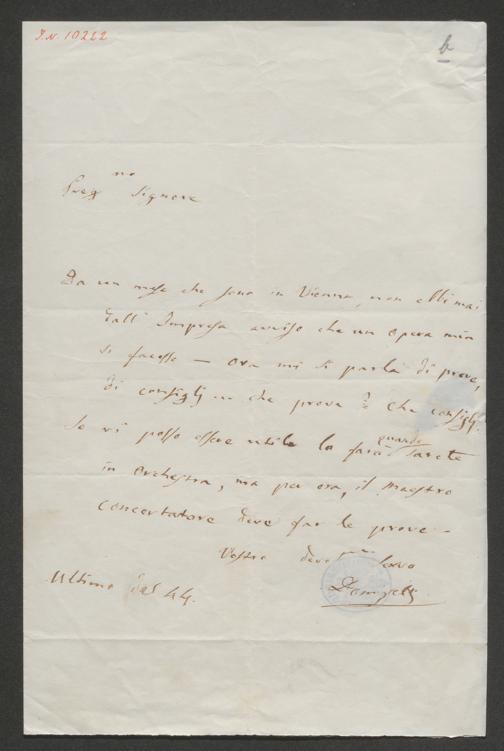 I.N. 10222
b
Preg mo Signore
Da un mese che sono in Vienna, non ebbi mai
dall' Impresa avviso che un opera mia
si facesse — ora mi si parla di prove,
di consigli — che prova? che consigli.
Se vi posso essere utile lo farò quando sarete
in orchestra, ma per ora, il Maestro
concertatore deve far le prove —
Vostro devo mo servo
Donizetti
Ultimo del 44.